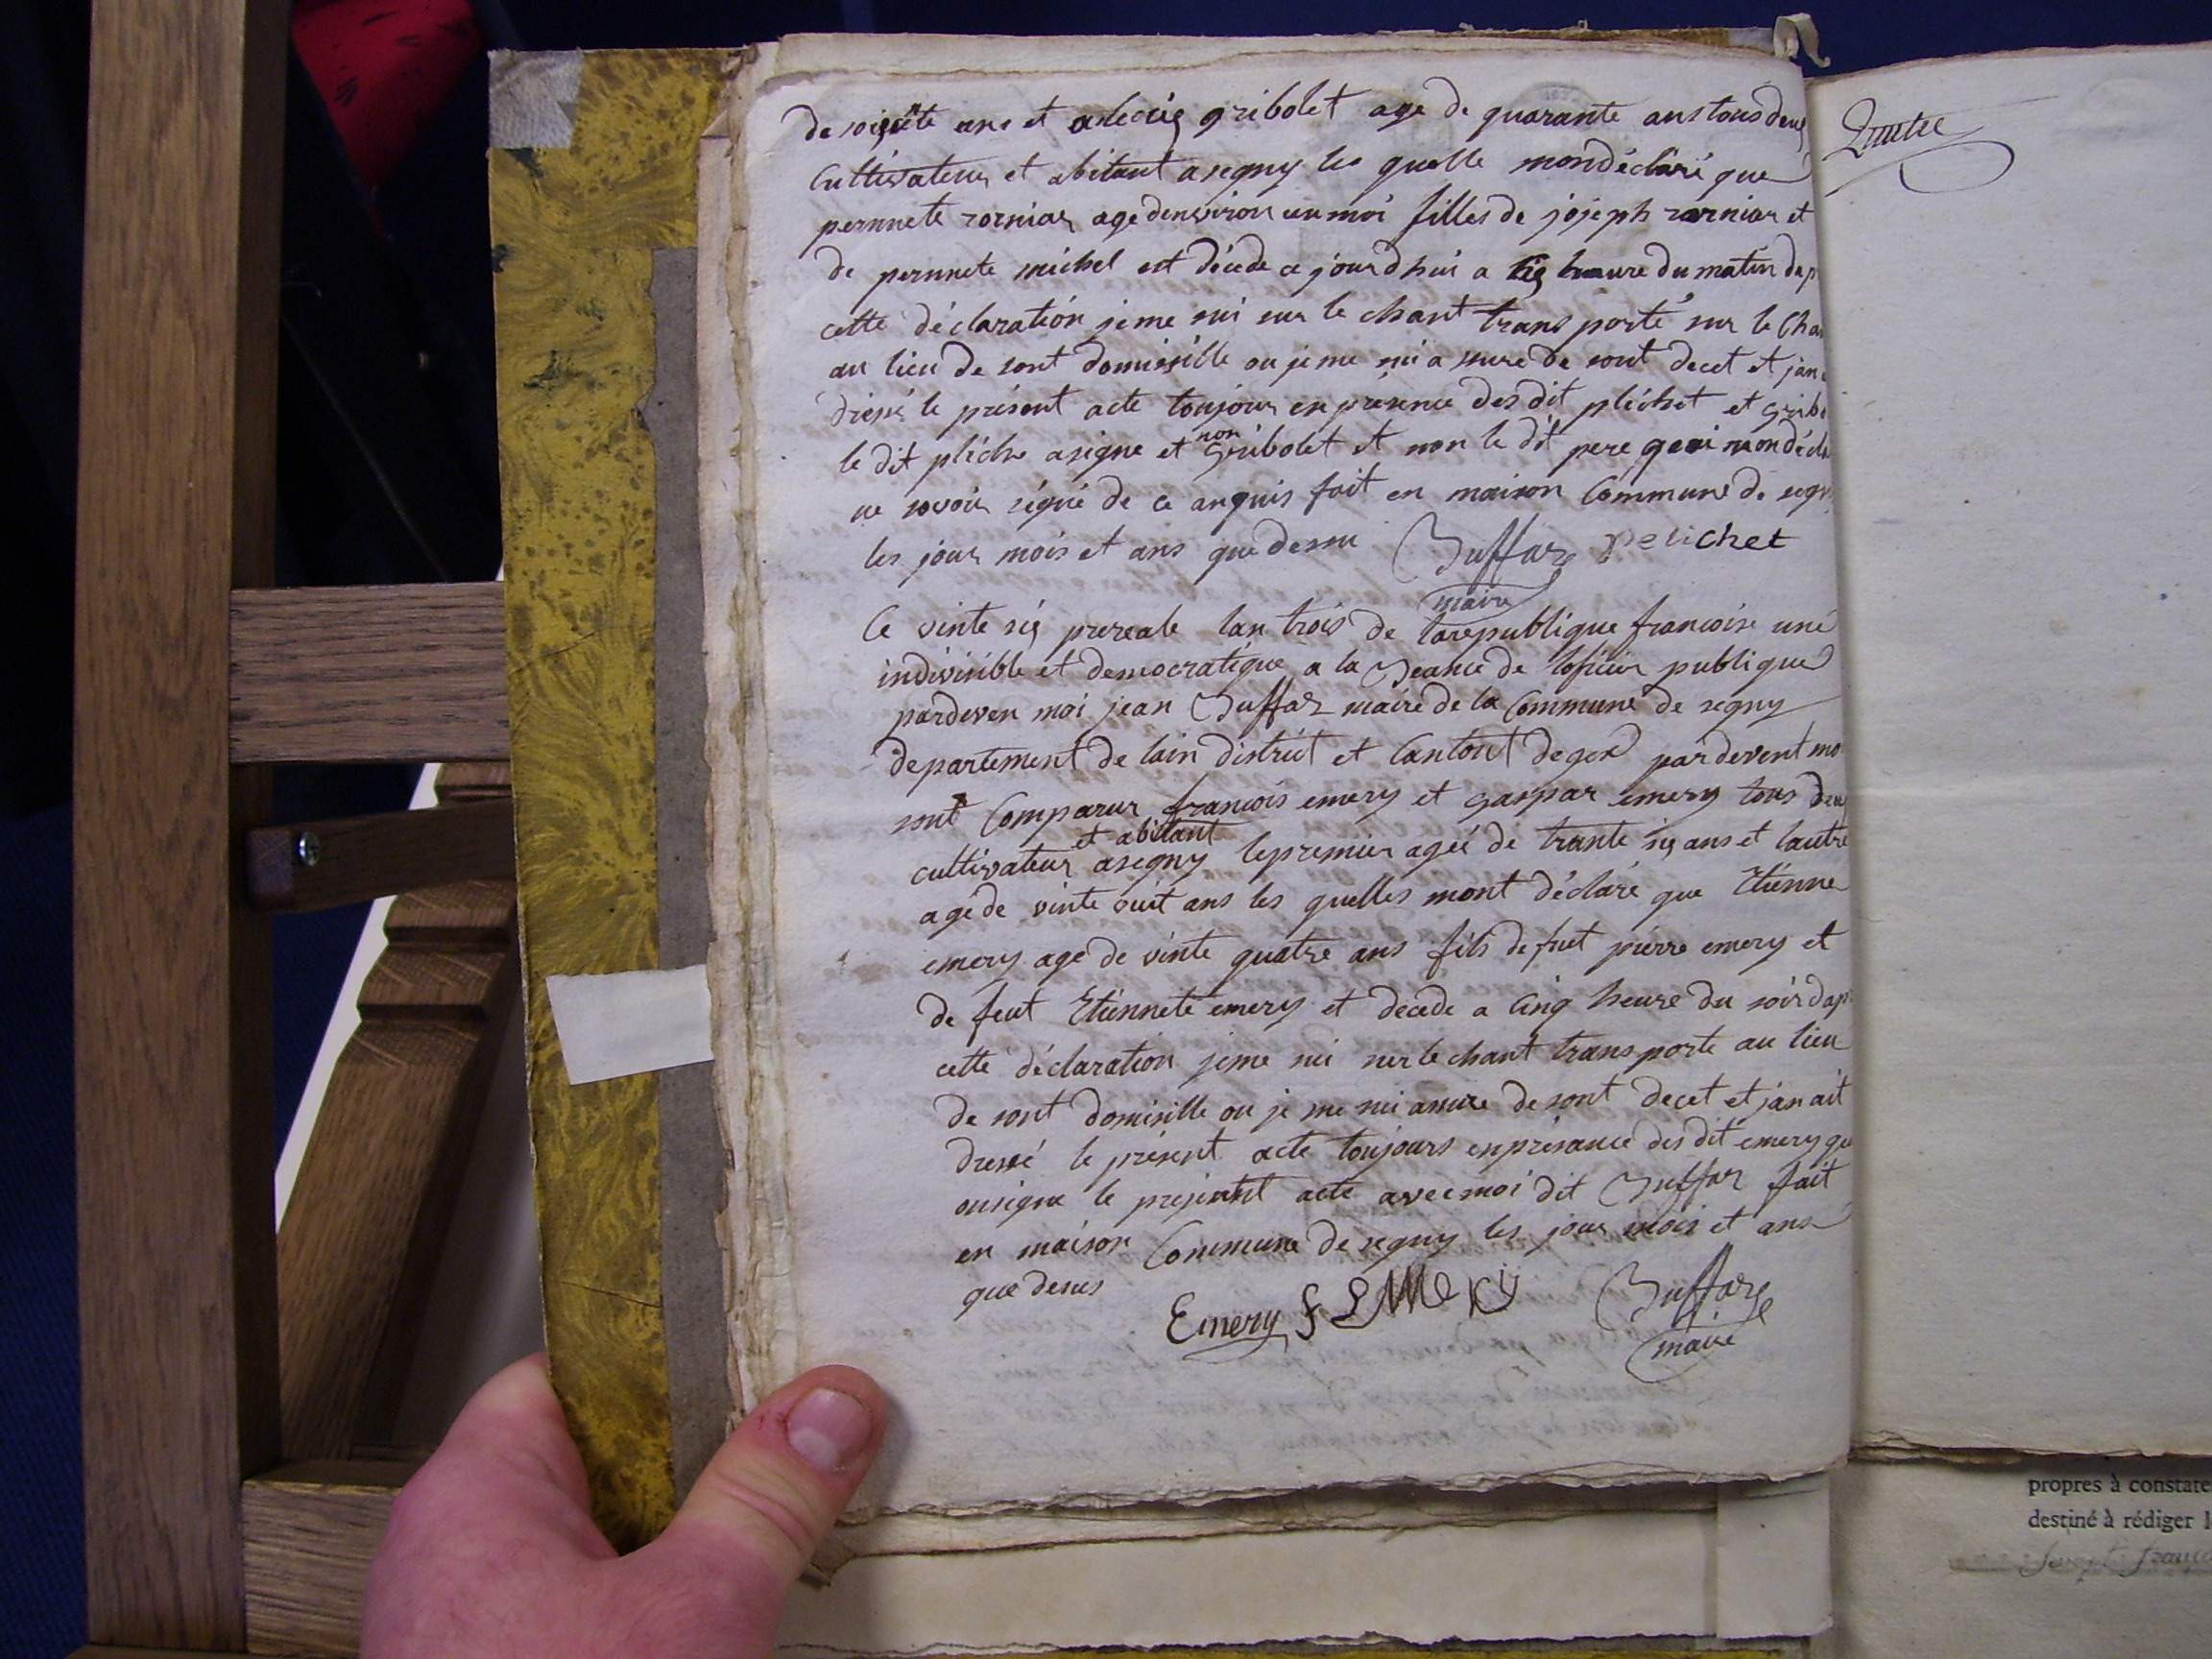 de soisente ans et gribolet age de quarante ans tous deus
Cultivateur et abitant a segny les quelle mon déclaré que
pernnete age denviron un moi filles de joseph et
de pernnete michel est décédé ce jourdhui a heure du matin dap
cette déclaration je me sui sur le chant trans porté sur le Cha
au lieu de sont domisille ou je me sui a sure de sont decet et jan
dressé le présent acte toujour en présence des dit plichet et gribo
le dit a signe et non gribolet et non le dit pere mon décla
ne savoir signé de ce anquis fait en maison Commune de segn
les jour mois et ans que dessu Buffaz pelichet
maire
Ce vinte sis prereale lan trois de la republique francoise une
indivisible et democratique a la seance de loficier publique
pardeven moi jean Buffaz maire de la Commune de segny
departement de lain district et Cantont de gex pardevent mo
sont Comparur francois emery et gaspar emery tous deu
et abitant
cultivateur a segny le premier agéé de trante sis ans et lautre
agé de vinte ouit ans les quelles mont déclaré que Etienne
emery age de vinte quatre ans fils de fuet pierre emery et
de feut Etiennete emery et decede a Cinq heure du soir dap
cette déclaration je me sui sur le chant trans porte au lieu
de sont domisille ou je me sui asure de sont decet et jan ait
dressé le présent acte toujours en présance des dit emery qu
on signe le present acte avec moi dit Buffaz fait
en maison Commune de segny les jour mois et ans
que desus
Emery f EMERY Buffaz
maire
propres à constate
destiné à rédiger l